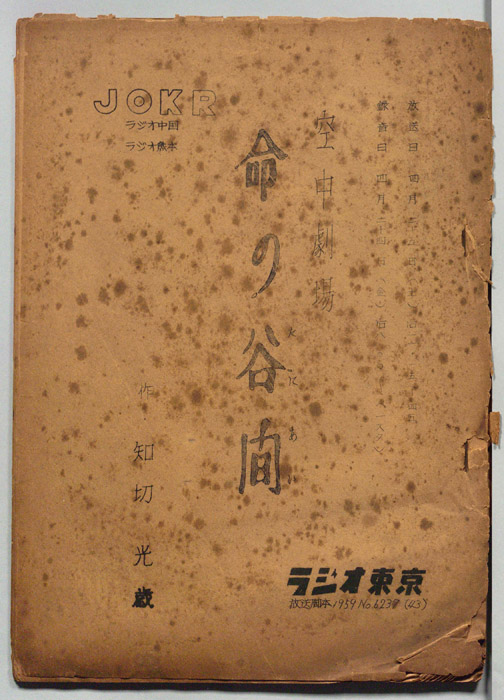 JOKR
ラジオ中国
ラジオ熊本
放送日 四月
録音日 四月二十四日(金)后
空中劇場
命の谷間
作 知切光歳
ラジオ東京
放送脚本 1959 No.6237 (43)